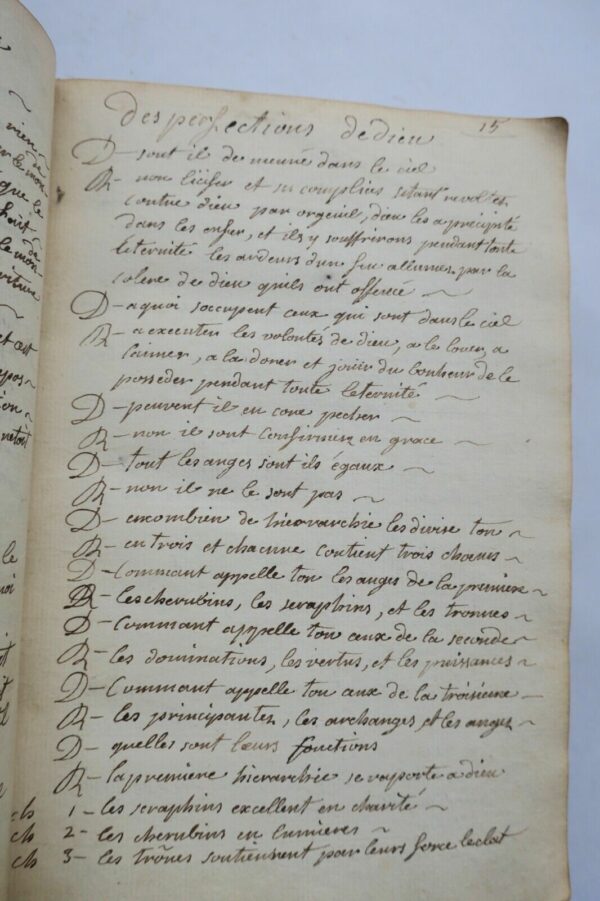 rien ~
que le
ecriture
et est
le
ch
ch
ch
15
Des perfections de dieu
D - sont il de meuré dans le ciel
R - non lucifer et ses complices setant revoltes
contre dieu par orgeuil, dieu les a précipité
dans les enfer, et ils y souffrirons pendant toute
leternité les ardeurs dun feu allumes par la
colere de dieu quils ont offencé ~
D - a quoi soccupent ceux qui sont dans le ciel
R - a executer les volontés de dieu, a le louer, a
laimer, a la dorer et jouir du bonheur de le
posseder pendant toute leternité ~
D - peuvent il en core pecher ~
R - non il sont confirmier en grace ~
D - tout les anges sont ils égaux ~
R - non il ne le sont pas ~
D - en combien de hierarchie les divise ton ~
R - en trois et chacune contient trois chœurs ~
D - Commant appelle ton les anges de la premiere ~
R - les cherubins, les seraphins, et les tronnes ~
D - Commant appelle ton ceux de la seconde ~
R - les dominations, les vertus, et les puissances ~
D - Commant appelle ton aux de la troisieme ~
R - les principantes, les archanges, et les anges ~
D - quelles sont lœurs fonctions
R - la premiere hierarchie se raporte a dieu
1 - les seraphins excellent en charité ~
2 - les cherubins en lumieres ~
3 - les trônes soutiennent par leurs force leclat